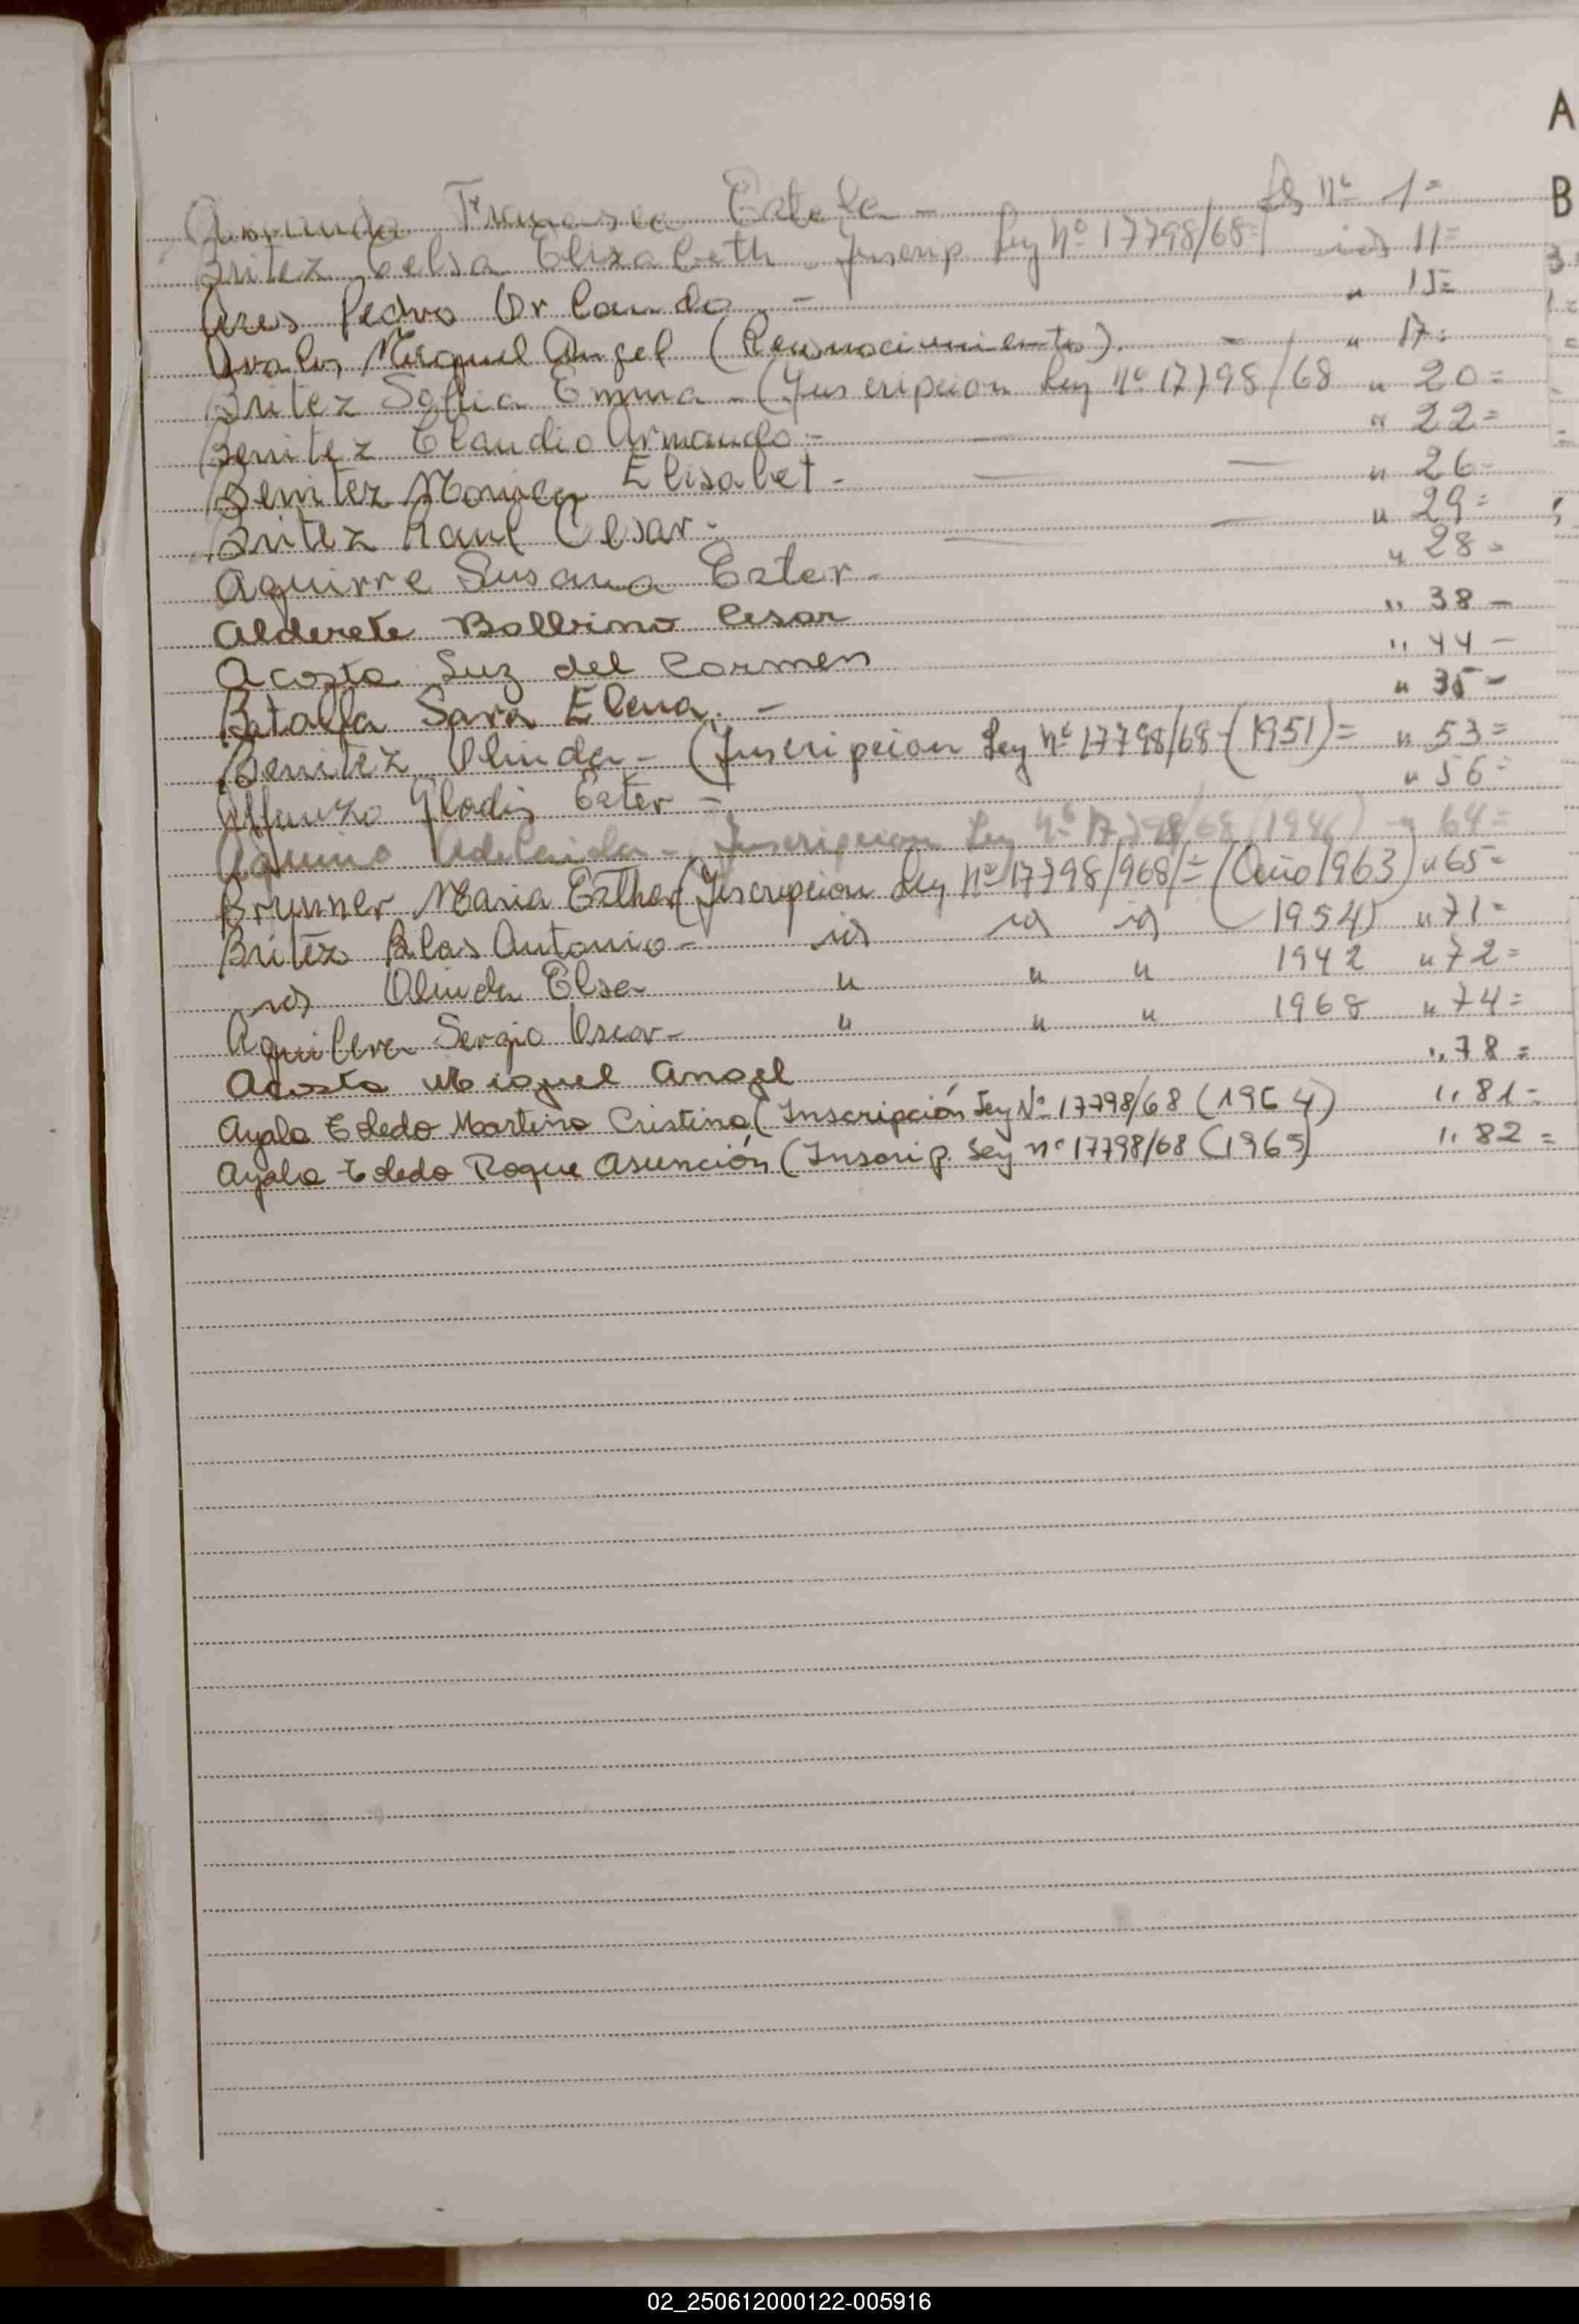 A
B
Francisca Estela - Fs nº 1=
Britez Celsa Elizabeth - Inscrip. Ley Nº 17798/68 - id 11=
Ares Pedro Orlando - " 15=
Avalos Miguel Angel (Reconocimiento). - " 17=
Britez Sofia Emma - (Inscripcion Ley Nº 17798/68 " 20=
Benitez Claudio Armando - " 22=
Benitez Monica Elisabet - " 26=
Britez Raul Cesar - " 29=
Aguirre Susana Ester - " 28=
Alderete Balbino Cesar " 38 -
Acosta Luz del Carmen " 44 -
Batalla Sara Elena. - " 35 -
Benitez Olinda - (Inscripcion Ley Nº 17798/68 - (1951)= " 53=
Gladis Ester - " 56=
Aquino Adelaida - Inscripcion Ley Nº 17798/68 " 64=
Brunner Maria Esther (Inscripcion Ley Nº 17798/968/= (Año 1963) " 65=
Britez Blas Antonio - id id id (1954) " 71=
id Olinda Elsa " " " 1942 " 72=
Aguilera Sergio Oscar - " " " 1968 " 74=
Acosta Miguel Angel " 78=
Ayala Toledo Martina Cristina (Inscripción Ley Nº 17798/68 (1964) " 81=
Ayala Toledo Roque Asunción (Inscrip. Ley nº 17798/68 (1965) " 82=
02_250612000122-005916